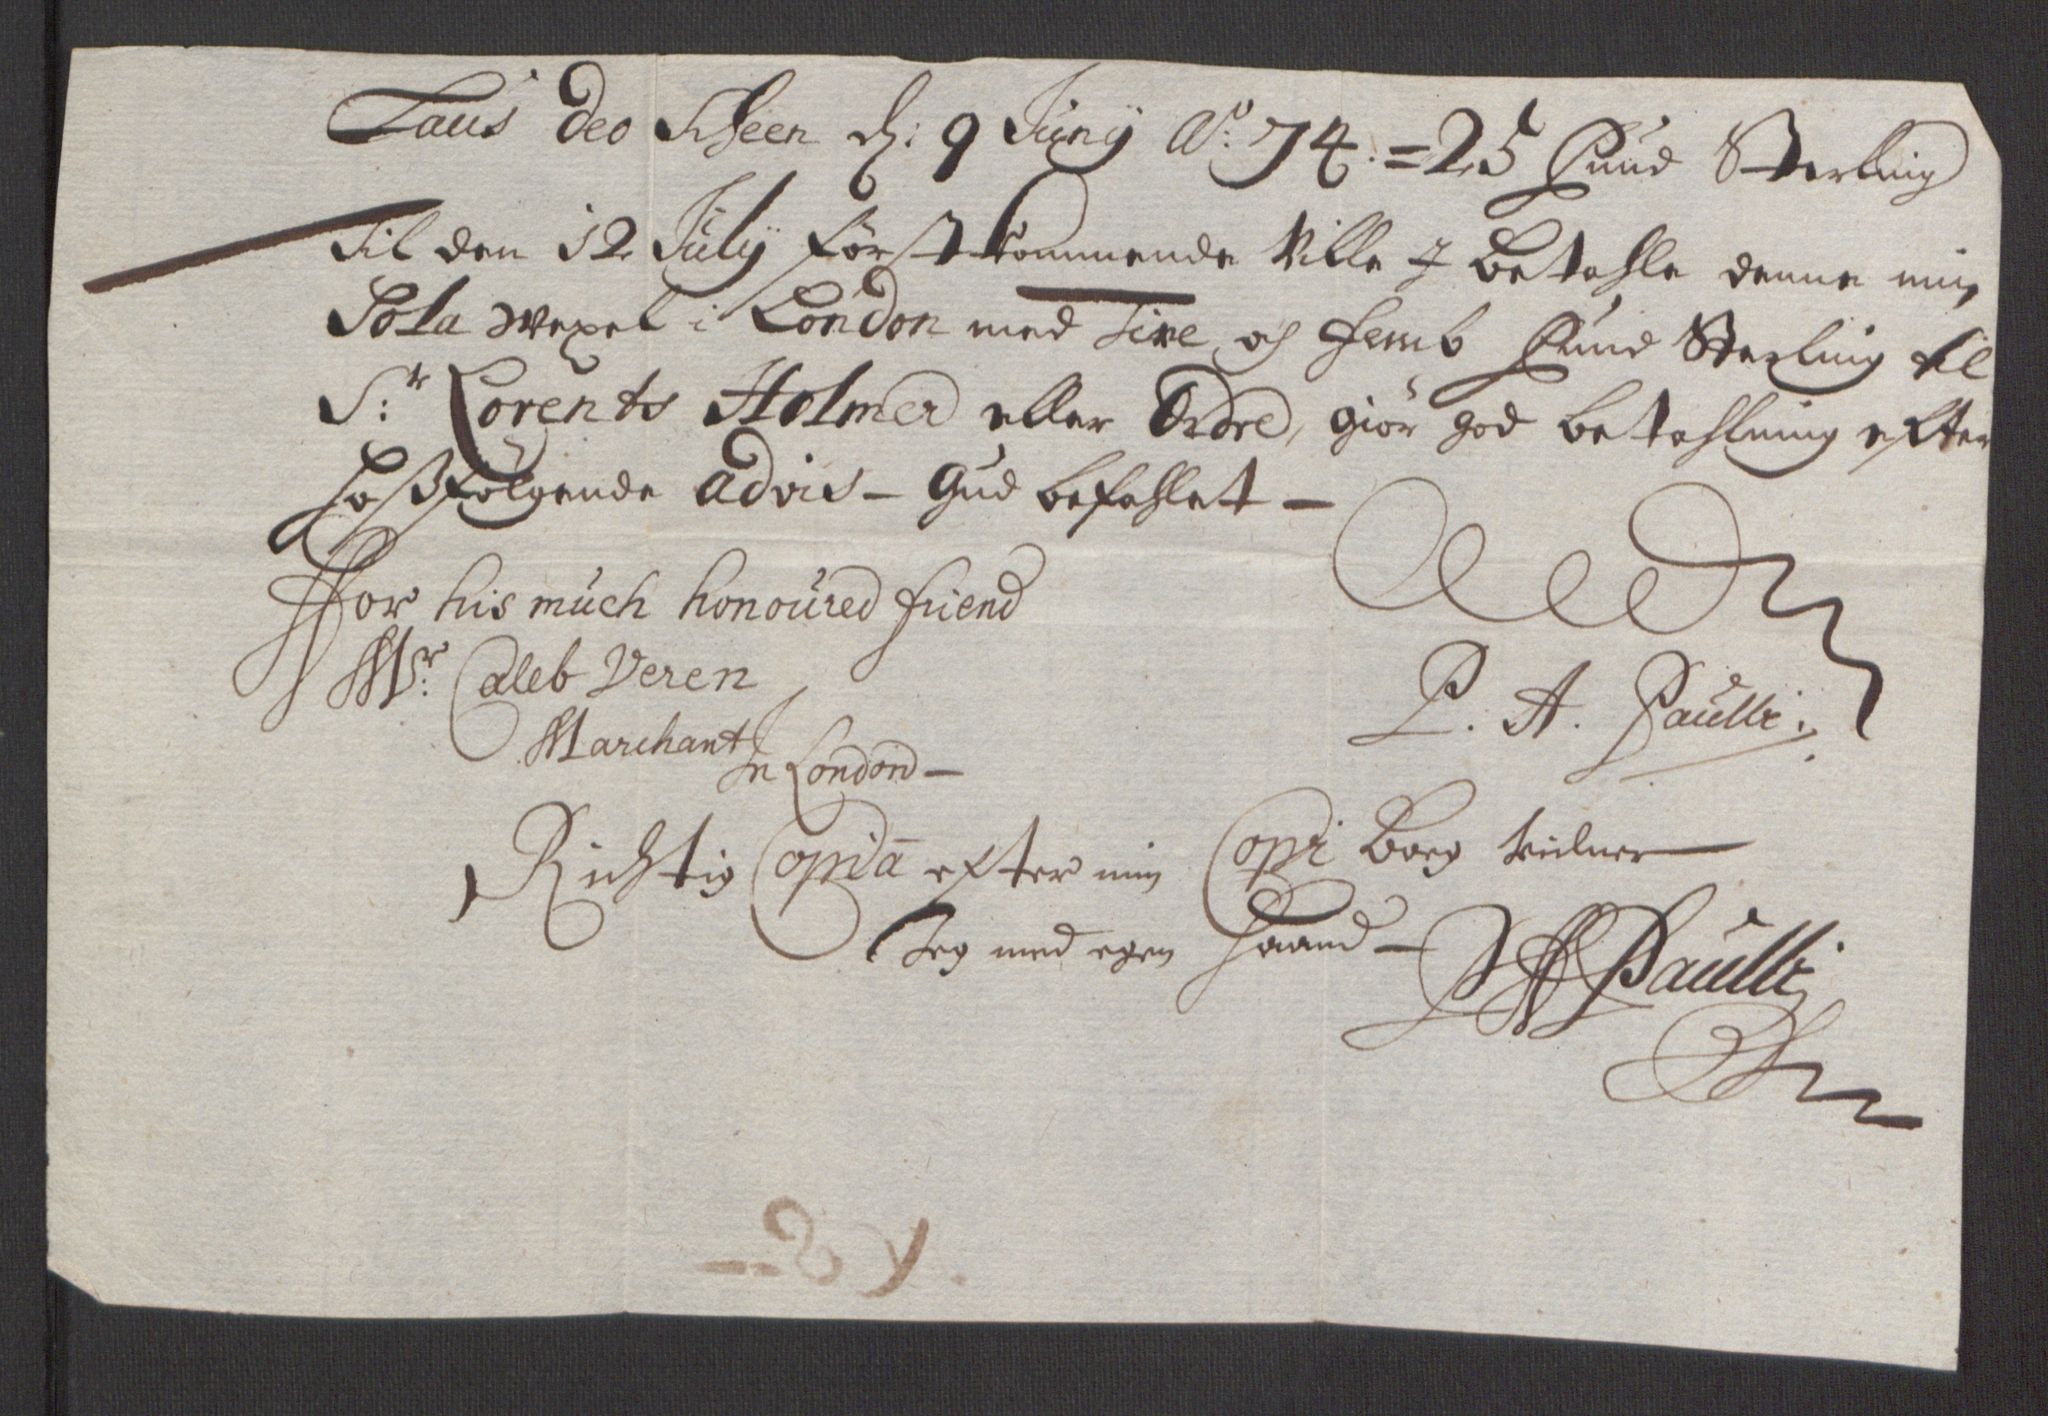 Laus deo Scheen d: 9 Junÿ Ao: 74. = 25 Pund Sterling
Til den 12 Julÿ först kommende Ville I betahle denne min
Sola wexel i London med Tive och femb Pund Sterling til
Sr: Lorents Holmer eller Ordre, giör god betahlning efter
hoßfölgende advis – Gud befahlet –
For his much honoured friend
Mr: Caleb Veren
Marchant
In London –
P. A. Paulli.
Richtig Copia efter min Copi Boeg vidner
Jeg med egen Haand –
PA Paulli